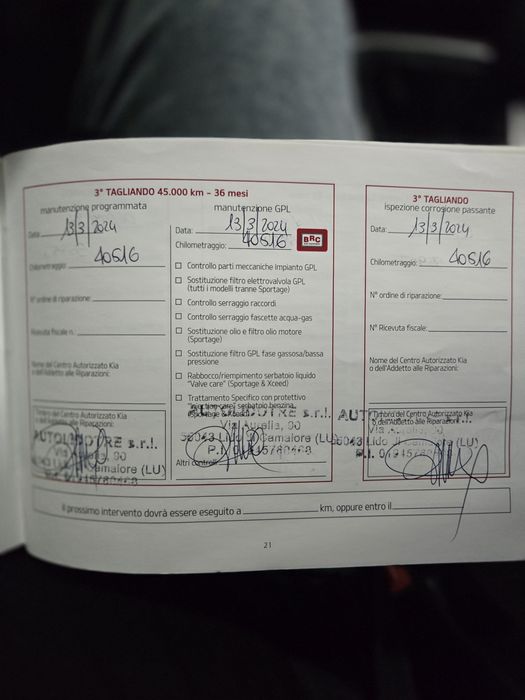 3° TAGLIANDO 45.000 km - 36 mesi
manutenzione programmata
Data: 13/3/2024
Chilometraggio: 40516
N° ordine di riparazione:
Ricevuta fiscale n.:
Nome del Centro Autorizzato Kia
o dell'Addetto alle Riparazioni:
Timbro del Centro Autorizzato Kia
o dell'Addetto alle Riparazioni:
AUTOLENDTRE s.r.l.
Via Aurelia, 90
Camaiore (LU)
manutenzione GPL
Data: 13/3/2024
Chilometraggio: 40516
BRC
Controllo parti meccaniche impianto GPL
Sostituzione filtro elettrovalvola GPL
(tutti i modelli tranne Sportage)
Controllo serraggio raccordi
Controllo serraggio fascette acqua-gas
Sostituzione olio e filtro olio motore
(Sportage)
Sostituzione filtro GPL fase gassosa/bassa
pressione
Rabbocco/riempimento serbatoio liquido
"Valve care" (Sportage & Xceed)
Trattamento Specifico con protettivo
serbatoio benzina
(Sportage & Xceed)
s.r.l.
Via Aurelia, 90
Lido di Camaiore (LU)
P.I.
Altri controlli
3° TAGLIANDO
ispezione corrosione passante
Data: 13/3/2024
Chilometraggio: 40516
N° ordine di riparazione:
N° Ricevuta fiscale:
Nome del Centro Autorizzato Kia
o dell'Addetto alle Riparazioni:
Timbro del Centro Autorizzato Kia
o dell'Addetto alle Riparazioni:
Via Aurelia, 90
Lido di Camaiore (LU)
P.I.
Il prossimo intervento dovrà essere eseguito a km, oppure entro il
21